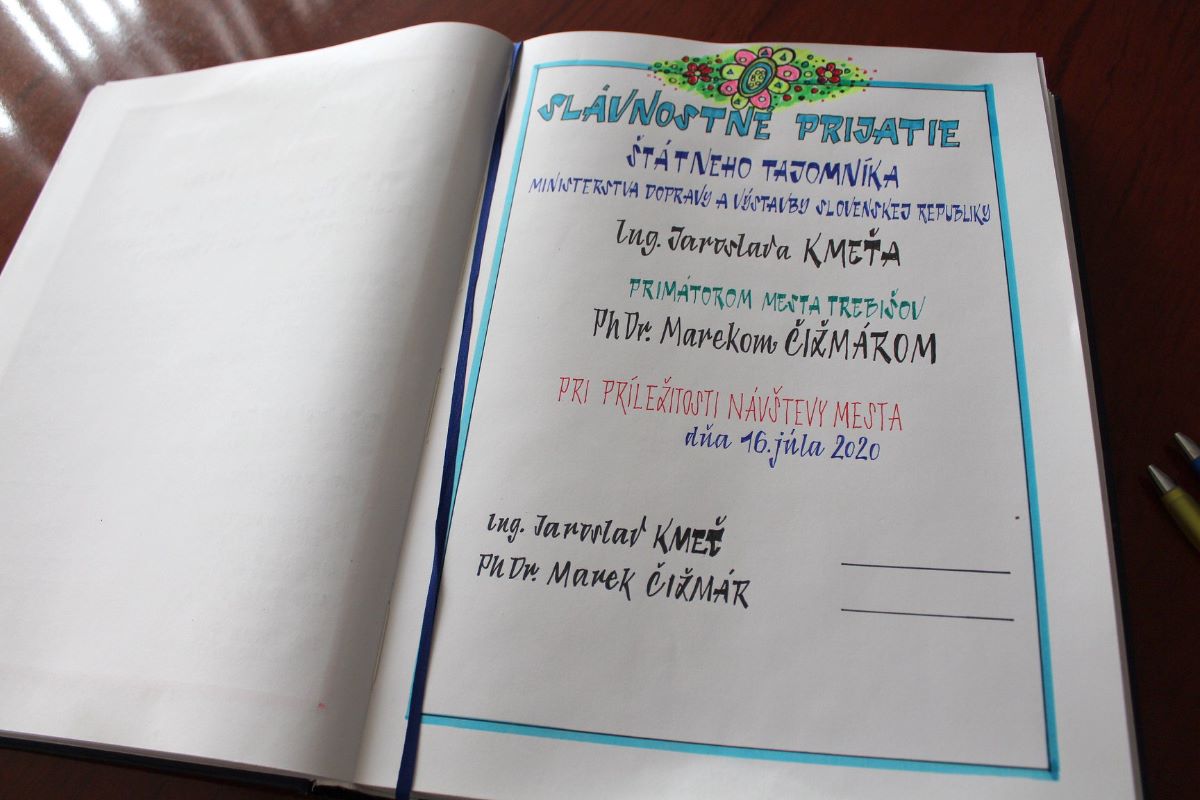 SLÁVNOSTNÉ PRIJATIE
ŠTÁTNEHO TAJOMNÍKA
MINISTERSTVA DOPRAVY A VÝSTAVBY SLOVENSKEJ REPUBLIKY
Ing. Jaroslava KMEŤA
PRIMÁTOROM MESTA TREBIŠOV
PhDr. Marekom ČIŽMÁROM
PRI PRÍLEŽITOSTI NÁVŠTEVY MESTA
dňa 16. júla 2020
Ing. Jaroslav KMEŤ
PhDr. Marek ČIŽMÁR